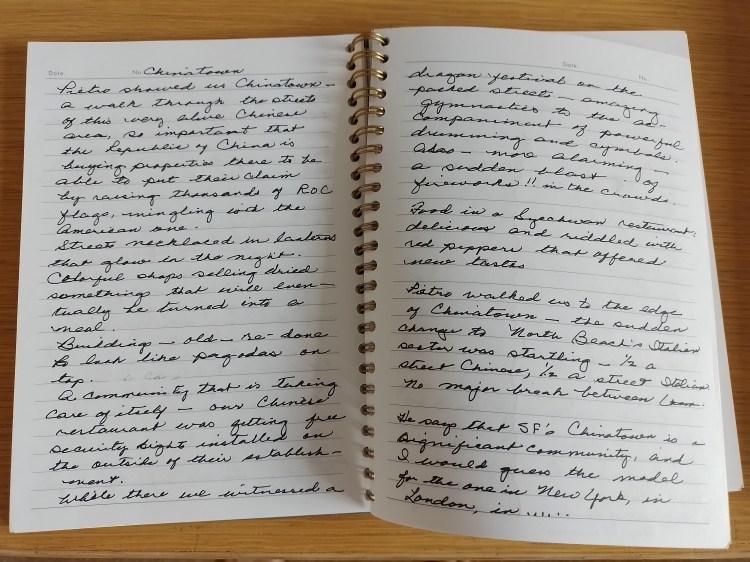 Date. No. Chinatown
Pietro showed us Chinatown –
a walk through the streets
of this very alive Chinese
area, so important that
the Republic of China is
buying properties there to be
able to put their claim
by raising thousands of ROC
flags, mingling with the
American one.
Streets necklaced in lanterns
that glow in the night.
Colorful shops selling dried
something that will even-
tually be turned into a
meal.
Buildings – old – re-done
to look like pagodas on
top.
A community that is taking
care of itself – our Chinese
restaurant was getting free
security lights installed on
the outside of their establish-
ment.
While there we witnessed a
Date. No.
dragon festival on the
packed streets – amazing
gymnastics to the ac-
companiment of powerful
drumming and cymbals.
Also – more alarming –
a sudden blast of
fireworks!! in the crowds.
Food in a Szechwan restaurant,
delicious and riddled with
red peppers that offered
new tastes
Pietro walked us to the edge
of Chinatown – the sudden
change to North Beach's Italian
sector was startling – 1/2 a
street Chinese, 1/2 a street Italian
No major break between
He says that SF's Chinatown is a
significant community, and
I would guess the model
for the one in New York, in
London, in ......